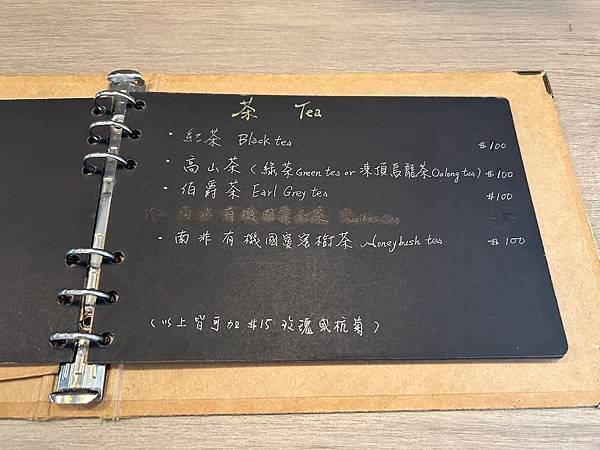 茶 Tea
・紅茶 Black tea $100
・高山茶（綠茶Green tea or 凍頂烏龍茶Oolong tea）$100
・伯爵茶 Earl Grey tea $100
南非有機國寶茶 Rooibos tea
・南非有機國寶蜜樹茶 Honeybush tea $100
（以上皆可加 $15 玫瑰或杭菊）